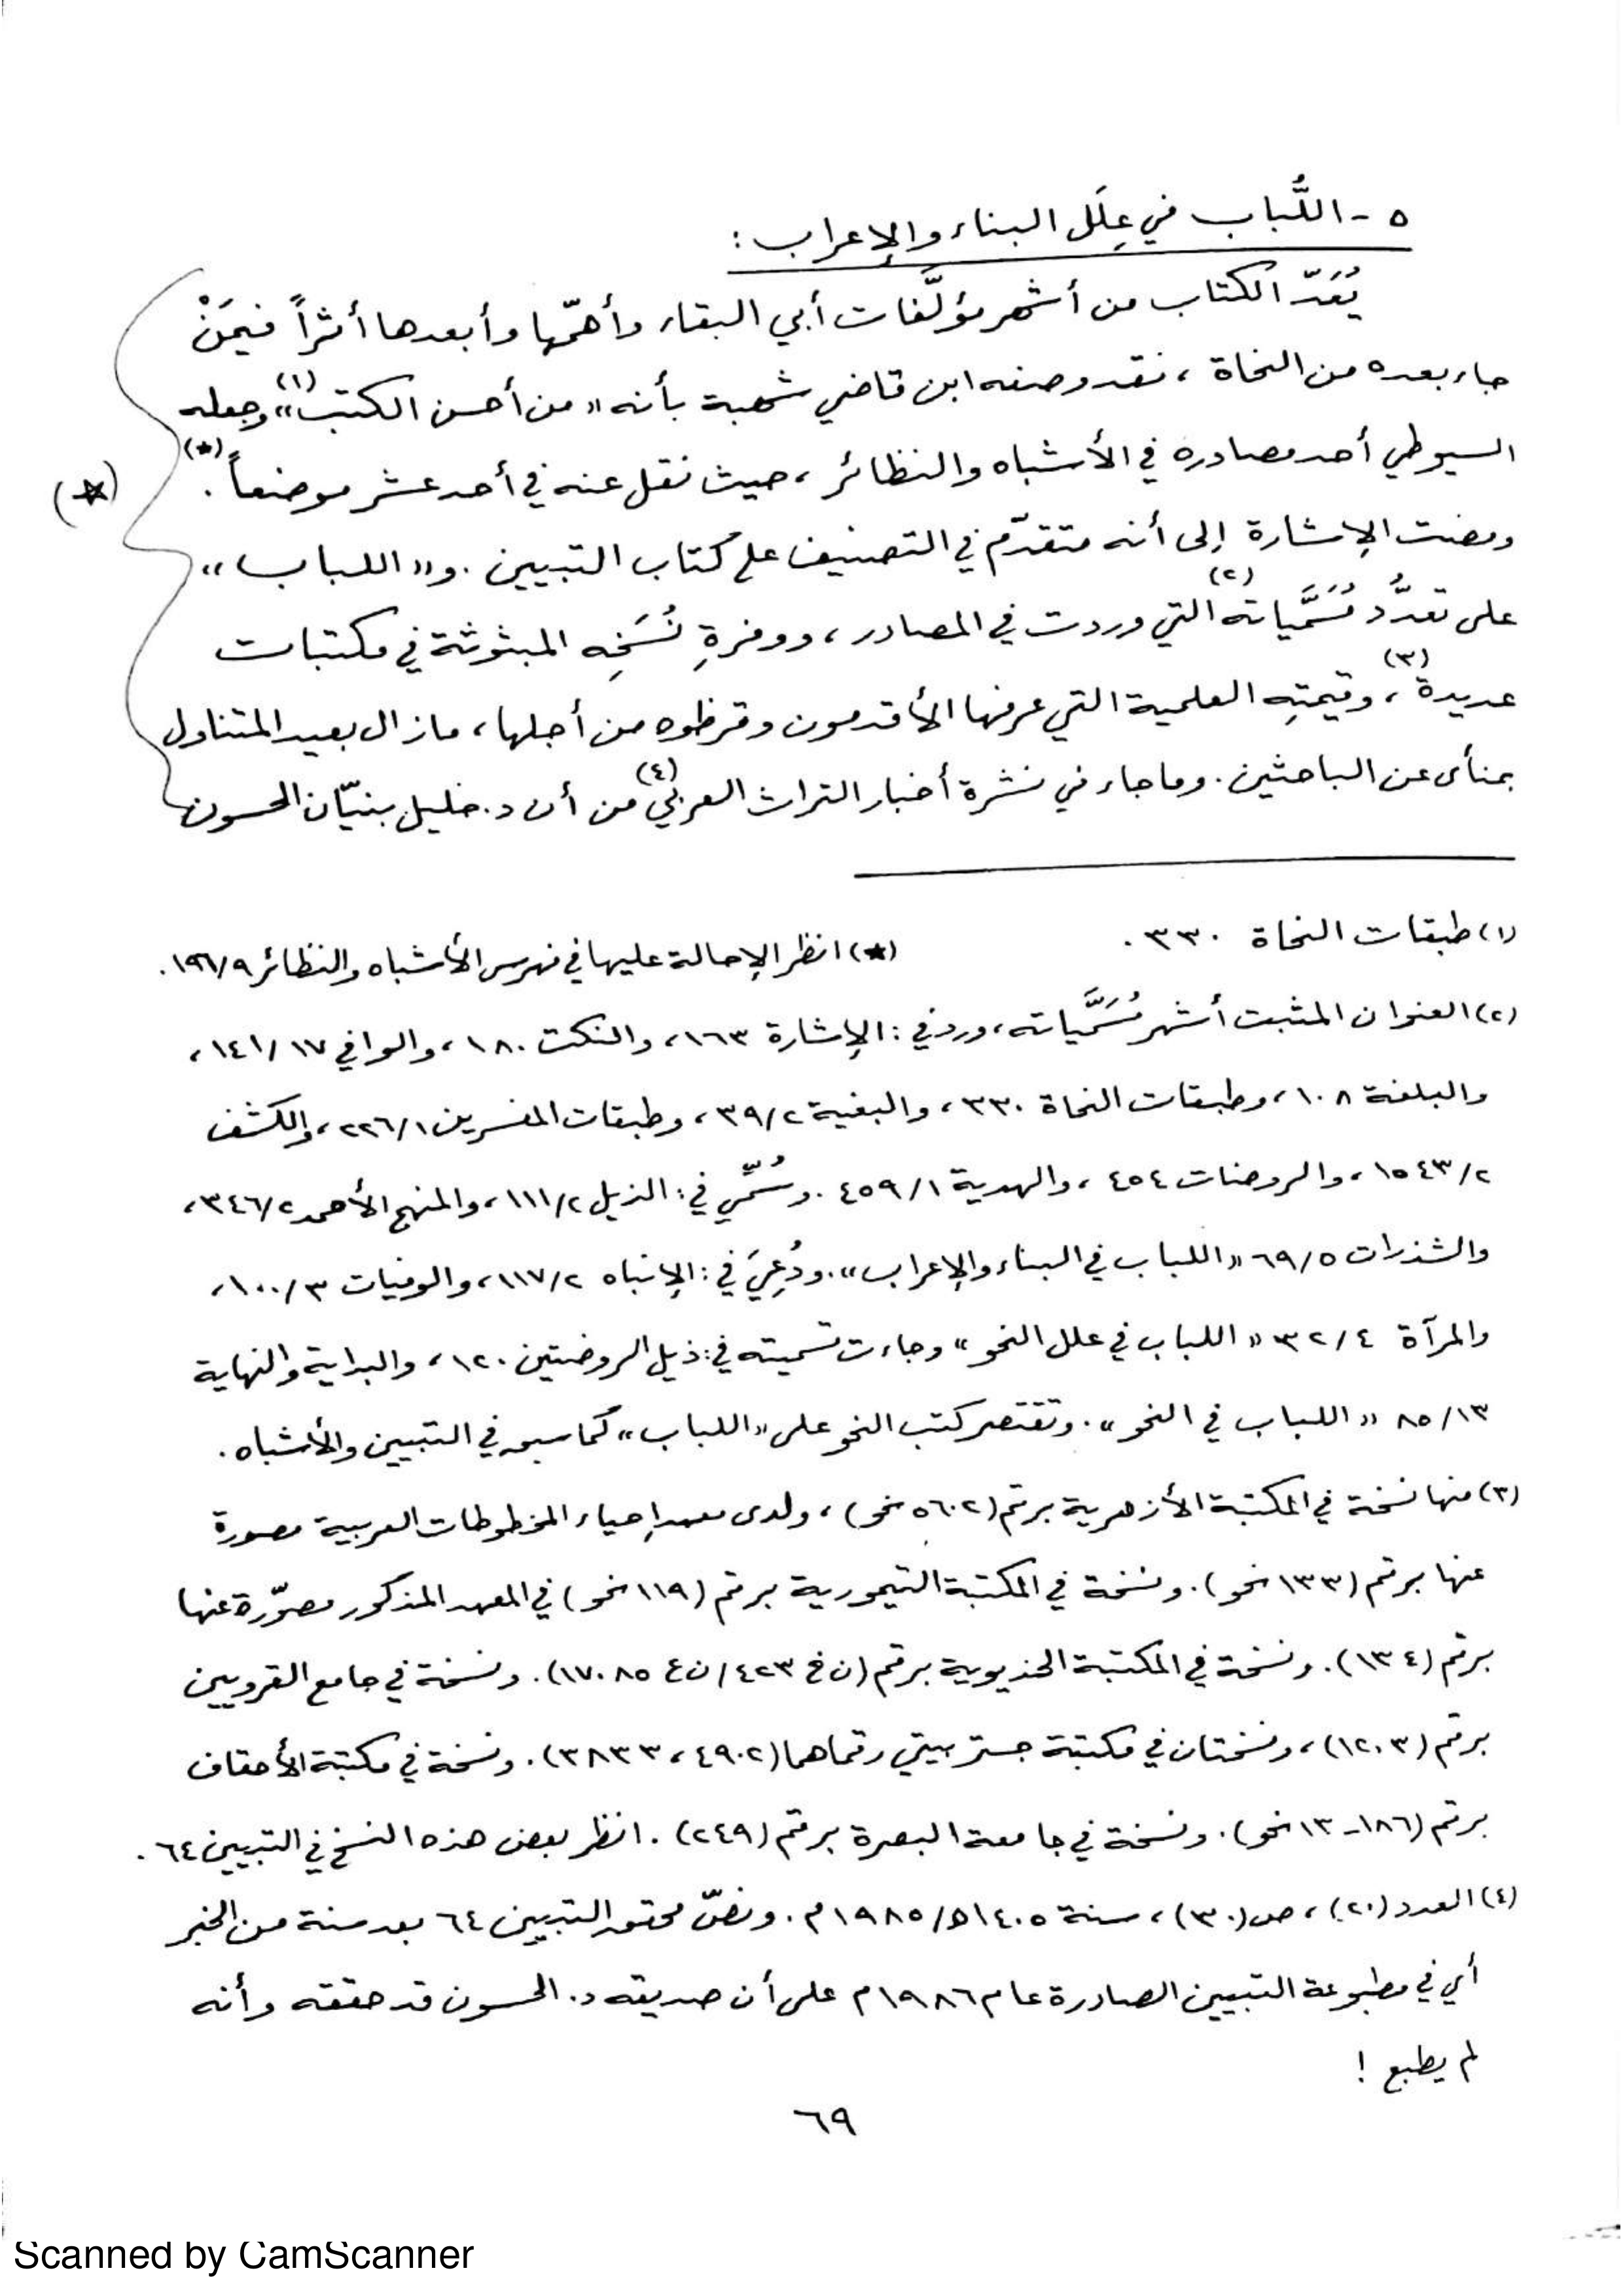 ٥ - اللُّباب في عِلَل البناء والإعراب :
يُعَدّ الكتاب من أشهر مؤلَّفات أبي البقاء وأهمّها وأبعدها أثراً فيمَنْ
جاء بعده من النحاة ، فقد وصفه ابن قاضي شهبة بأنه « من أحسن الكتب »(١) وجعله
السيوطي أحد مصادره في الأشباه والنظائر ، حيث نقل عنه في أحد عشر موضعاً(*) .
(*)
ومضت الإشارة إلى أنه متقدّم في التصنيف على كتاب التبيين . و « اللباب »
على تعدُّد مُسَمَّياته(٢) التي وردت في المصادر ، ووفرةِ نُسَخِه المبثوثة في مكتبات
عديدة(٣) ، وقيمتِه العلمية التي عرفها الأقدمون وقرظوه من أجلها ، مازال بعيد المتناول
بمنأى عن الباحثين . وما جاء في نشرة أخبار التراث العربي(٤) من أن د . خليل بنيّان الحسون
(١) طبقات النحاة ٣٣٠ .
(*) انظر الإحالة عليها في فهرس الأشباه والنظائر ١٩٦/٩ .
(٢) العنوان المثبت أشهر مُسَمَّياته ، ورد في : الإشارة ١٦٣ ، والنكت ١٨٠ ، والوافي ١٧/ ١٤١ ،
والبلغة ١٠٨ ، وطبقات النحاة ٣٣٠ ، والبغية ٣٩/٢ ، وطبقات المفسرين ٢٢٦/١ ، والكشف
١٥٤٣/٢ ، والروضات ٤٥٤ ، والهدية ٤٥٩/١ . وسُمّي في : الذيل ١١١/٢ ، والمنهج الأحمد ٣٤٦/٢ ،
والشذرات ٦٩/٥ « اللباب في البناء والإعراب » . ودُعِيَ في : الإنباه ١١٧/٢ ، والوفيات ١٠٠/٣ ،
والمرآة ٣٢/٤ « اللباب في علل النحو » وجاءت تسميته في : ذيل الروضتين ١٢٠ ، والبداية والنهاية
٨٥/١٣ « اللباب في النحو » . وتقتصر كتب النحو على « اللباب » كما سبق في التبيين والأشباه .
(٣) منها نسخة في المكتبة الأزهرية برقم (٥٦٠٢ نحو) ، ولدى معهد إحياء المخطوطات العربية مصورة
عنها برقم (١٣٣ نحو) . ونسخة في المكتبة التيمورية برقم (١١٩ نحو) في المعهد المذكور مصوّرة عنها
برقم (١٣٤) . ونسخة في المكتبة الخديوية برقم (ن خ ٤٢٣ / ن ع ١٧٠٨٥) . ونسخة في جامع القرويين
برقم (١٢٠٣) ، ونسختان في مكتبة جستربيتي رقماهما (٤٩٠٢ ، ٣٨٣٣) . ونسخة في مكتبة الأحقاف
برقم (١٨٦ - ١٣ نحو) . ونسخة في جامعة البصرة برقم (٢٤٩) . انظر بعض هذه النسخ في التبيين ٦٤ .
(٤) العدد (٢٠) ، ص (٣٠) ، سنة ١٤٠٥ه/١٩٨٥م . ونصّ محقق التبيين ٦٤ بعد سنة من الخبر
أي في مطبوعة التبيين الصادرة عام ١٩٨٦م على أن صديقه د . الحسون قد حققه وأنه
لم يطبع !
٦٩
Scanned by CamScanner